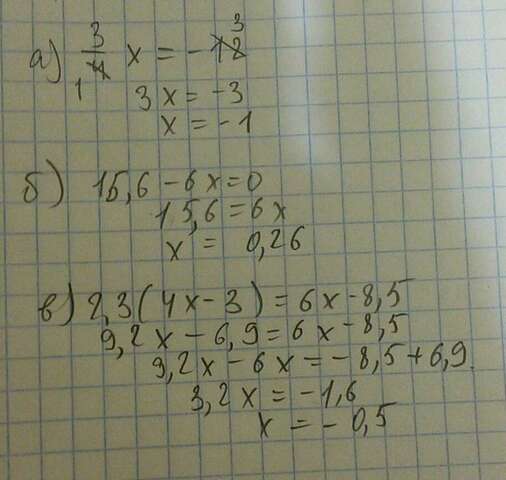 а) 3/4 x = -12
1 3
3x = -3
x = -1
б) 15,6 - 6x = 0
15,6 = 6x
x = 0,26
в) 2,3(4x - 3) = 6x - 8,5
9,2x - 6,9 = 6x - 8,5
9,2x - 6x = -8,5 + 6,9
3,2x = -1,6
x = -0,5